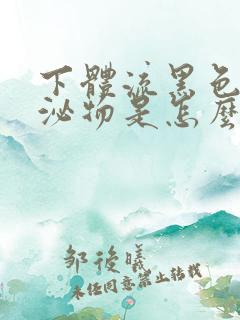 下體流黑色
泌物是怎麼
鄒後曦
未经同意禁止转载